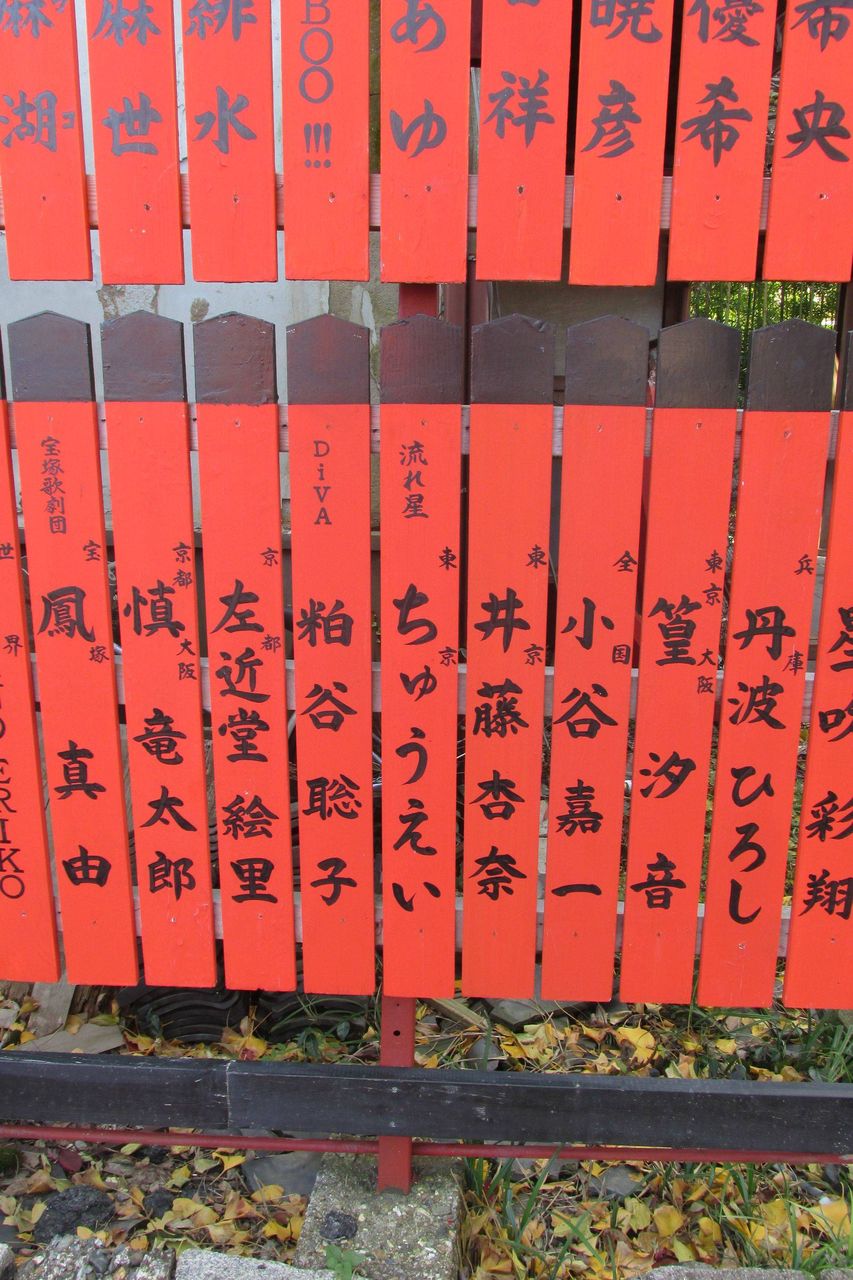 希央
優希
暁彦
祥
あゆ
BOO!!!
緋水
麻世
麻湖
星吹彩翔
兵庫
丹波ひろし
東京 大阪
篁 汐音
全国
小谷嘉一
東京
井藤杏奈
流れ星
東京
ちゅうえい
DiVA
粕谷聡子
京都
左近堂絵里
京都 大阪
慎 竜太郎
宝塚歌劇団
宝塚
鳳 真由
世界
ERIKO